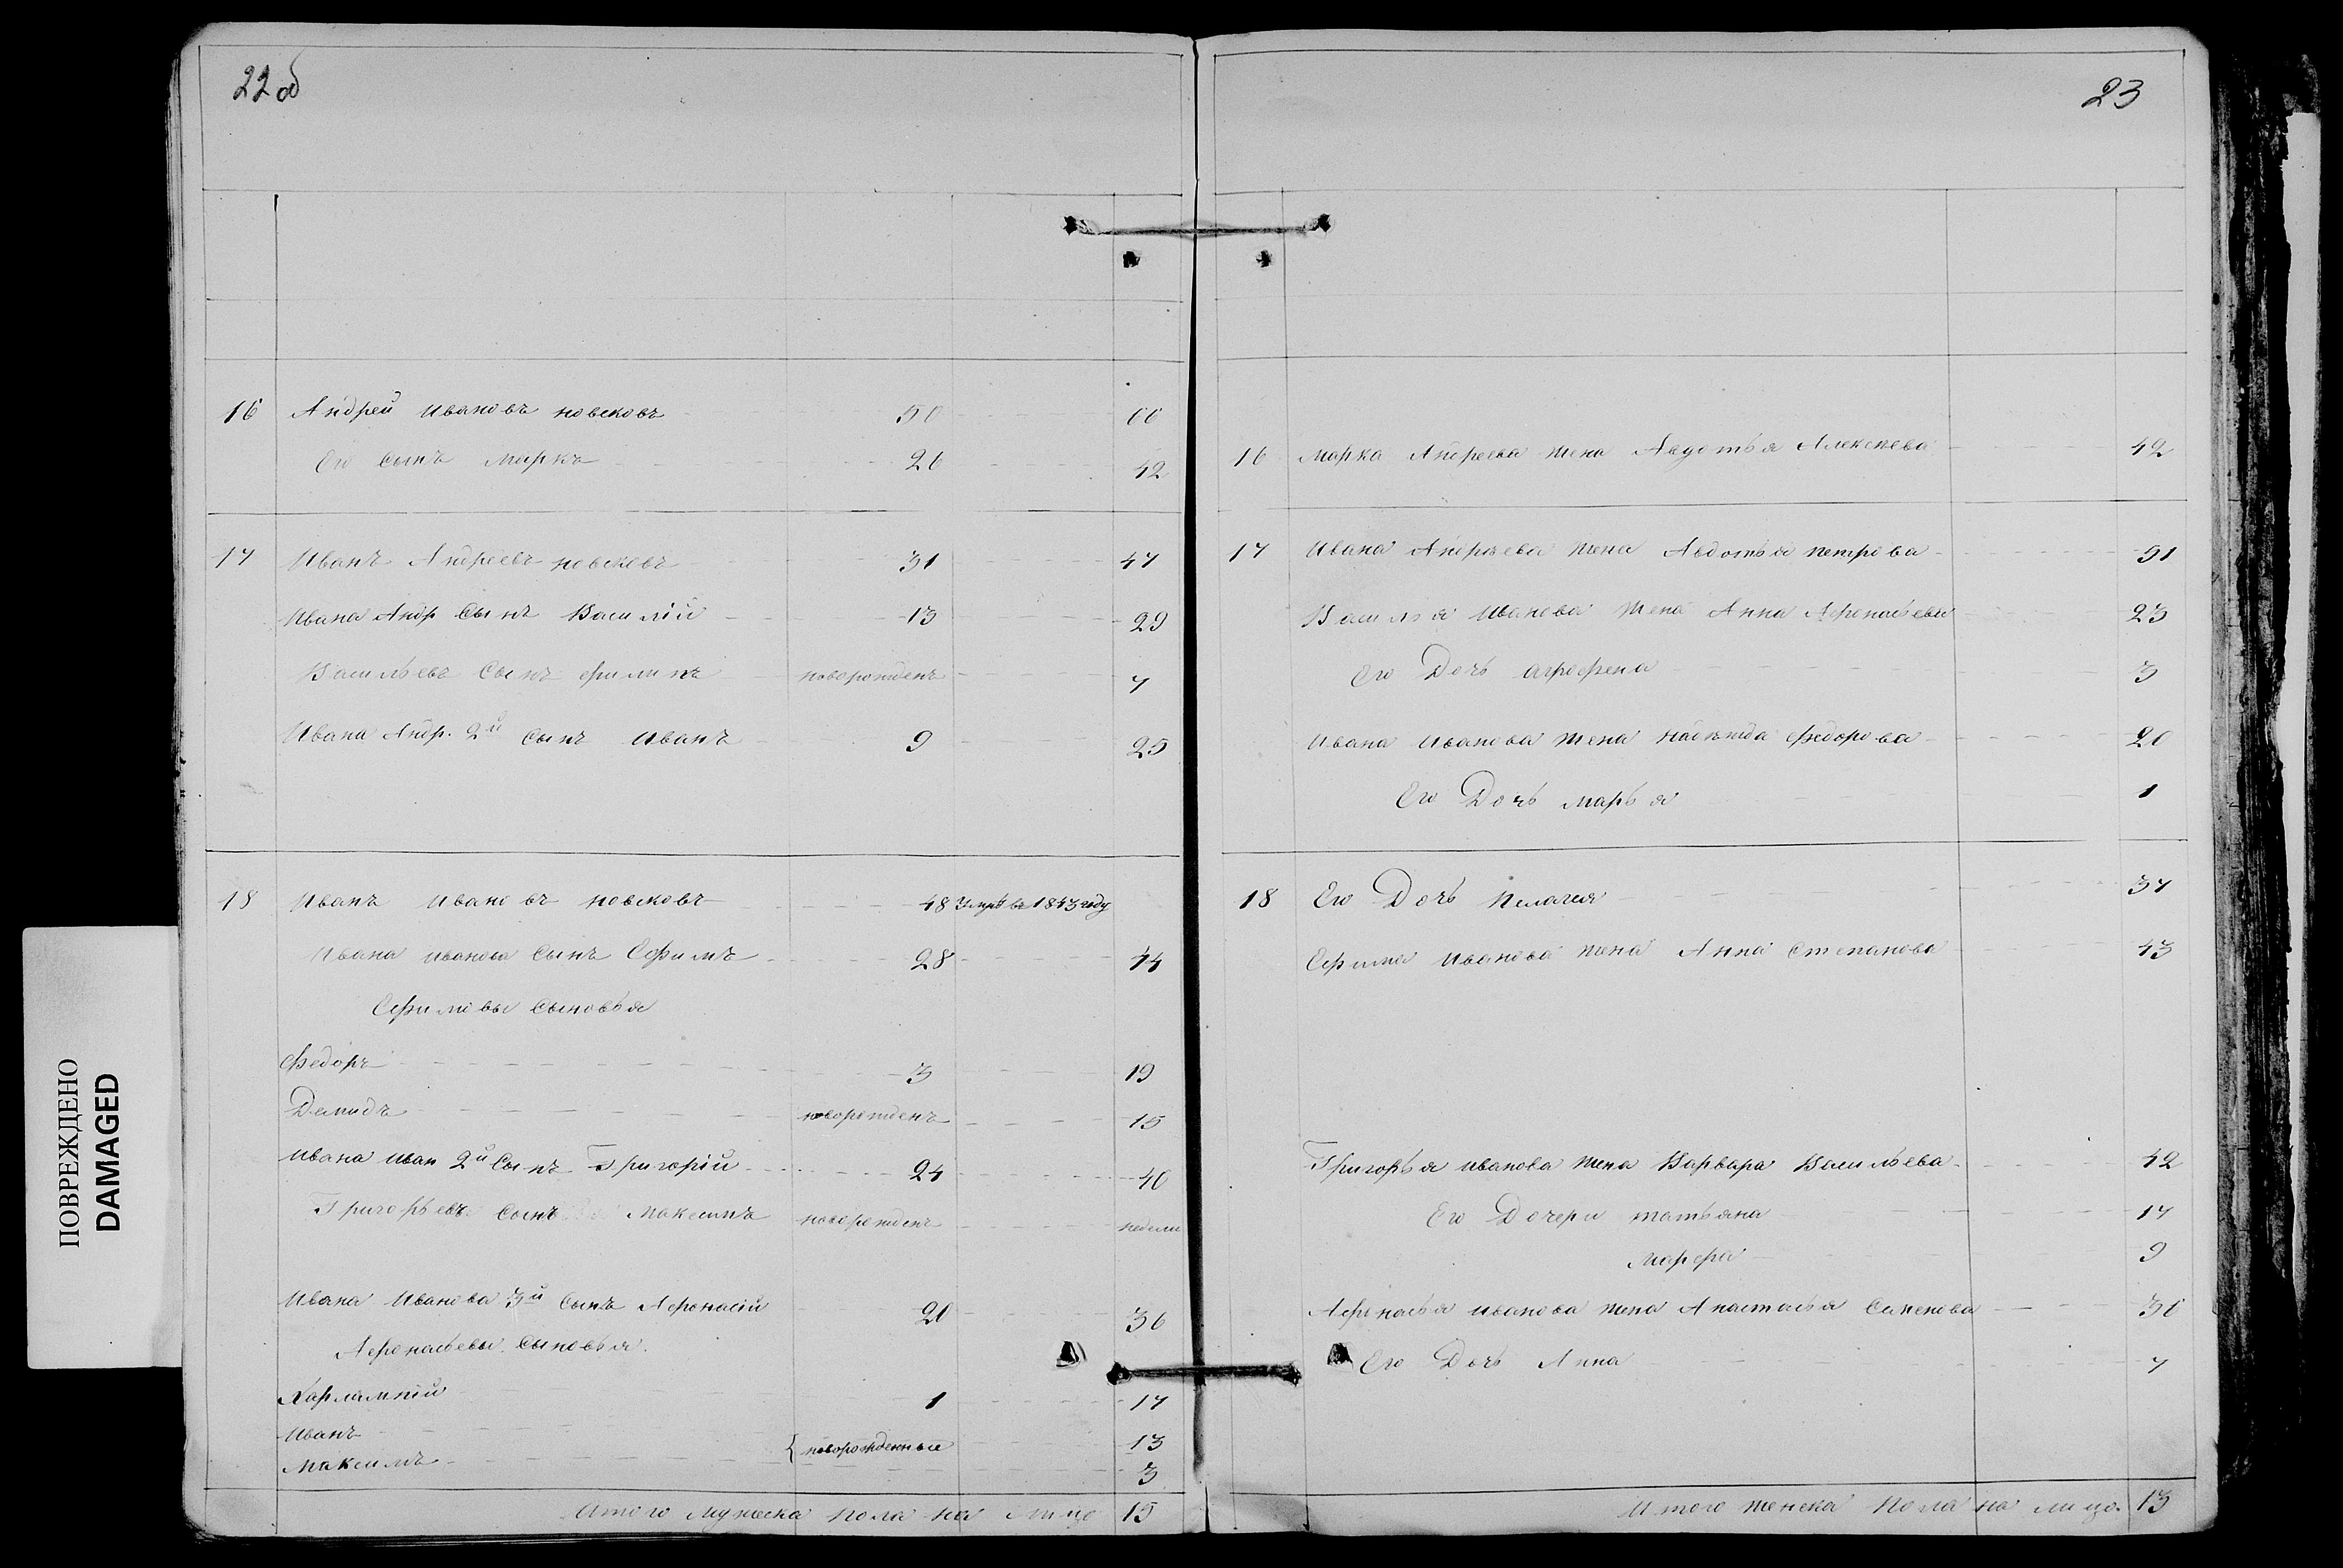 22 об
16 Андрей Ивановъ Новсковъ 50 66
Его сынъ Маркъ 26 42
17 Иванъ Андреевъ Новсковъ 31 47
Ивана Андр сынъ Василій 13 29
Васильевъ сынъ Филипъ новорожденъ 7
Ивана Андр. 2й сынъ Иванъ 9 25
18 Иванъ Ивановъ Новсковъ 48 Умръ въ 1843 году
Ивана Иванова сынъ Ефимъ 28 44
Ефимовы сыновья
Федоръ 3 19
Демидъ новорожденъ 15
Ивана Иван 2й сынъ Григорій 24 40
Григорьевъ сынъ Максимъ новорожденъ недели
Ивана Иванова 3й сынъ Афонасій 20 36
Афонасьевы сыновья.
Харлампій 1 17
Иванъ { новорожденные 13
Максимъ 3
Итого мужеска пола на лицо 15
23
16 Марка Андреева жена Авдотья Алексеева 42
17 Ивана Андреева жена Авдотья Петрова 51
Василья Иванова жена Анна Афонасьева 23
Его Дочь Агрофена 3
Ивана Иванова жена Надежда Федорова 20
Его Дочь Марья 1
18 Его Дочь Пелагея 37
Ефима Иванова жена Анна Степанова 43
Григорья Иванова жена Варвара Васильева 42
Его Дочери Татьяна 17
Марфа 9
Афонасья Иванова жена Анастасья Семенова 36
Его Дочь Анна 7
Итого женска пола на лицо. 13
ПОВРЕЖДЕНО
DAMAGED